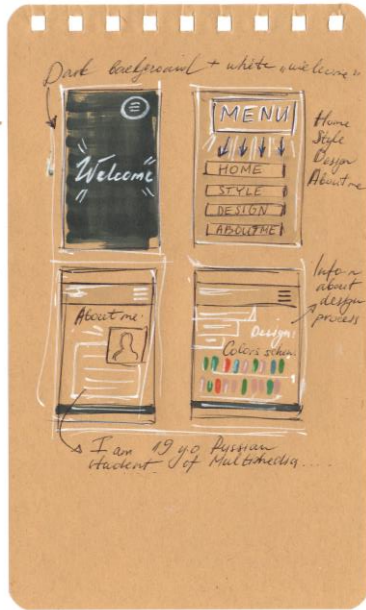 Dark background + white "welcome"
Welcome
MENU
HOME
STYLE
DESIGN
ABOUT ME
Home
Style
Design
About me
About me:
Design:
Colors schem.
Info-n
about
design
process
I am 19 yo Russian
student of Multimedia....